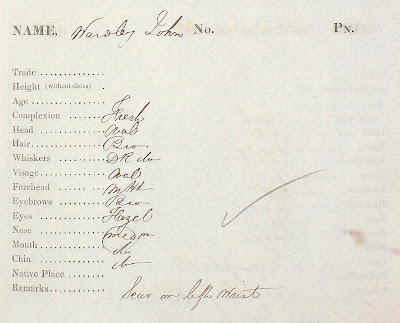 NAME, Wardley John No. PN.
Trade ..............
Height (without shoes) .
Age ................
Complexion ....... Fresh
Head .............. Oval
Hair ............... Bro
Whiskers ........ DR do
Visage ............ Oval
Forehead ........ M Ht
Eyebrows ........ Bro
Eyes .............. Hazel
Nose .............. medm
Mouth ............ do
Chin .............. do
Native Place .........
Remarks ............ Scar on left Wrist